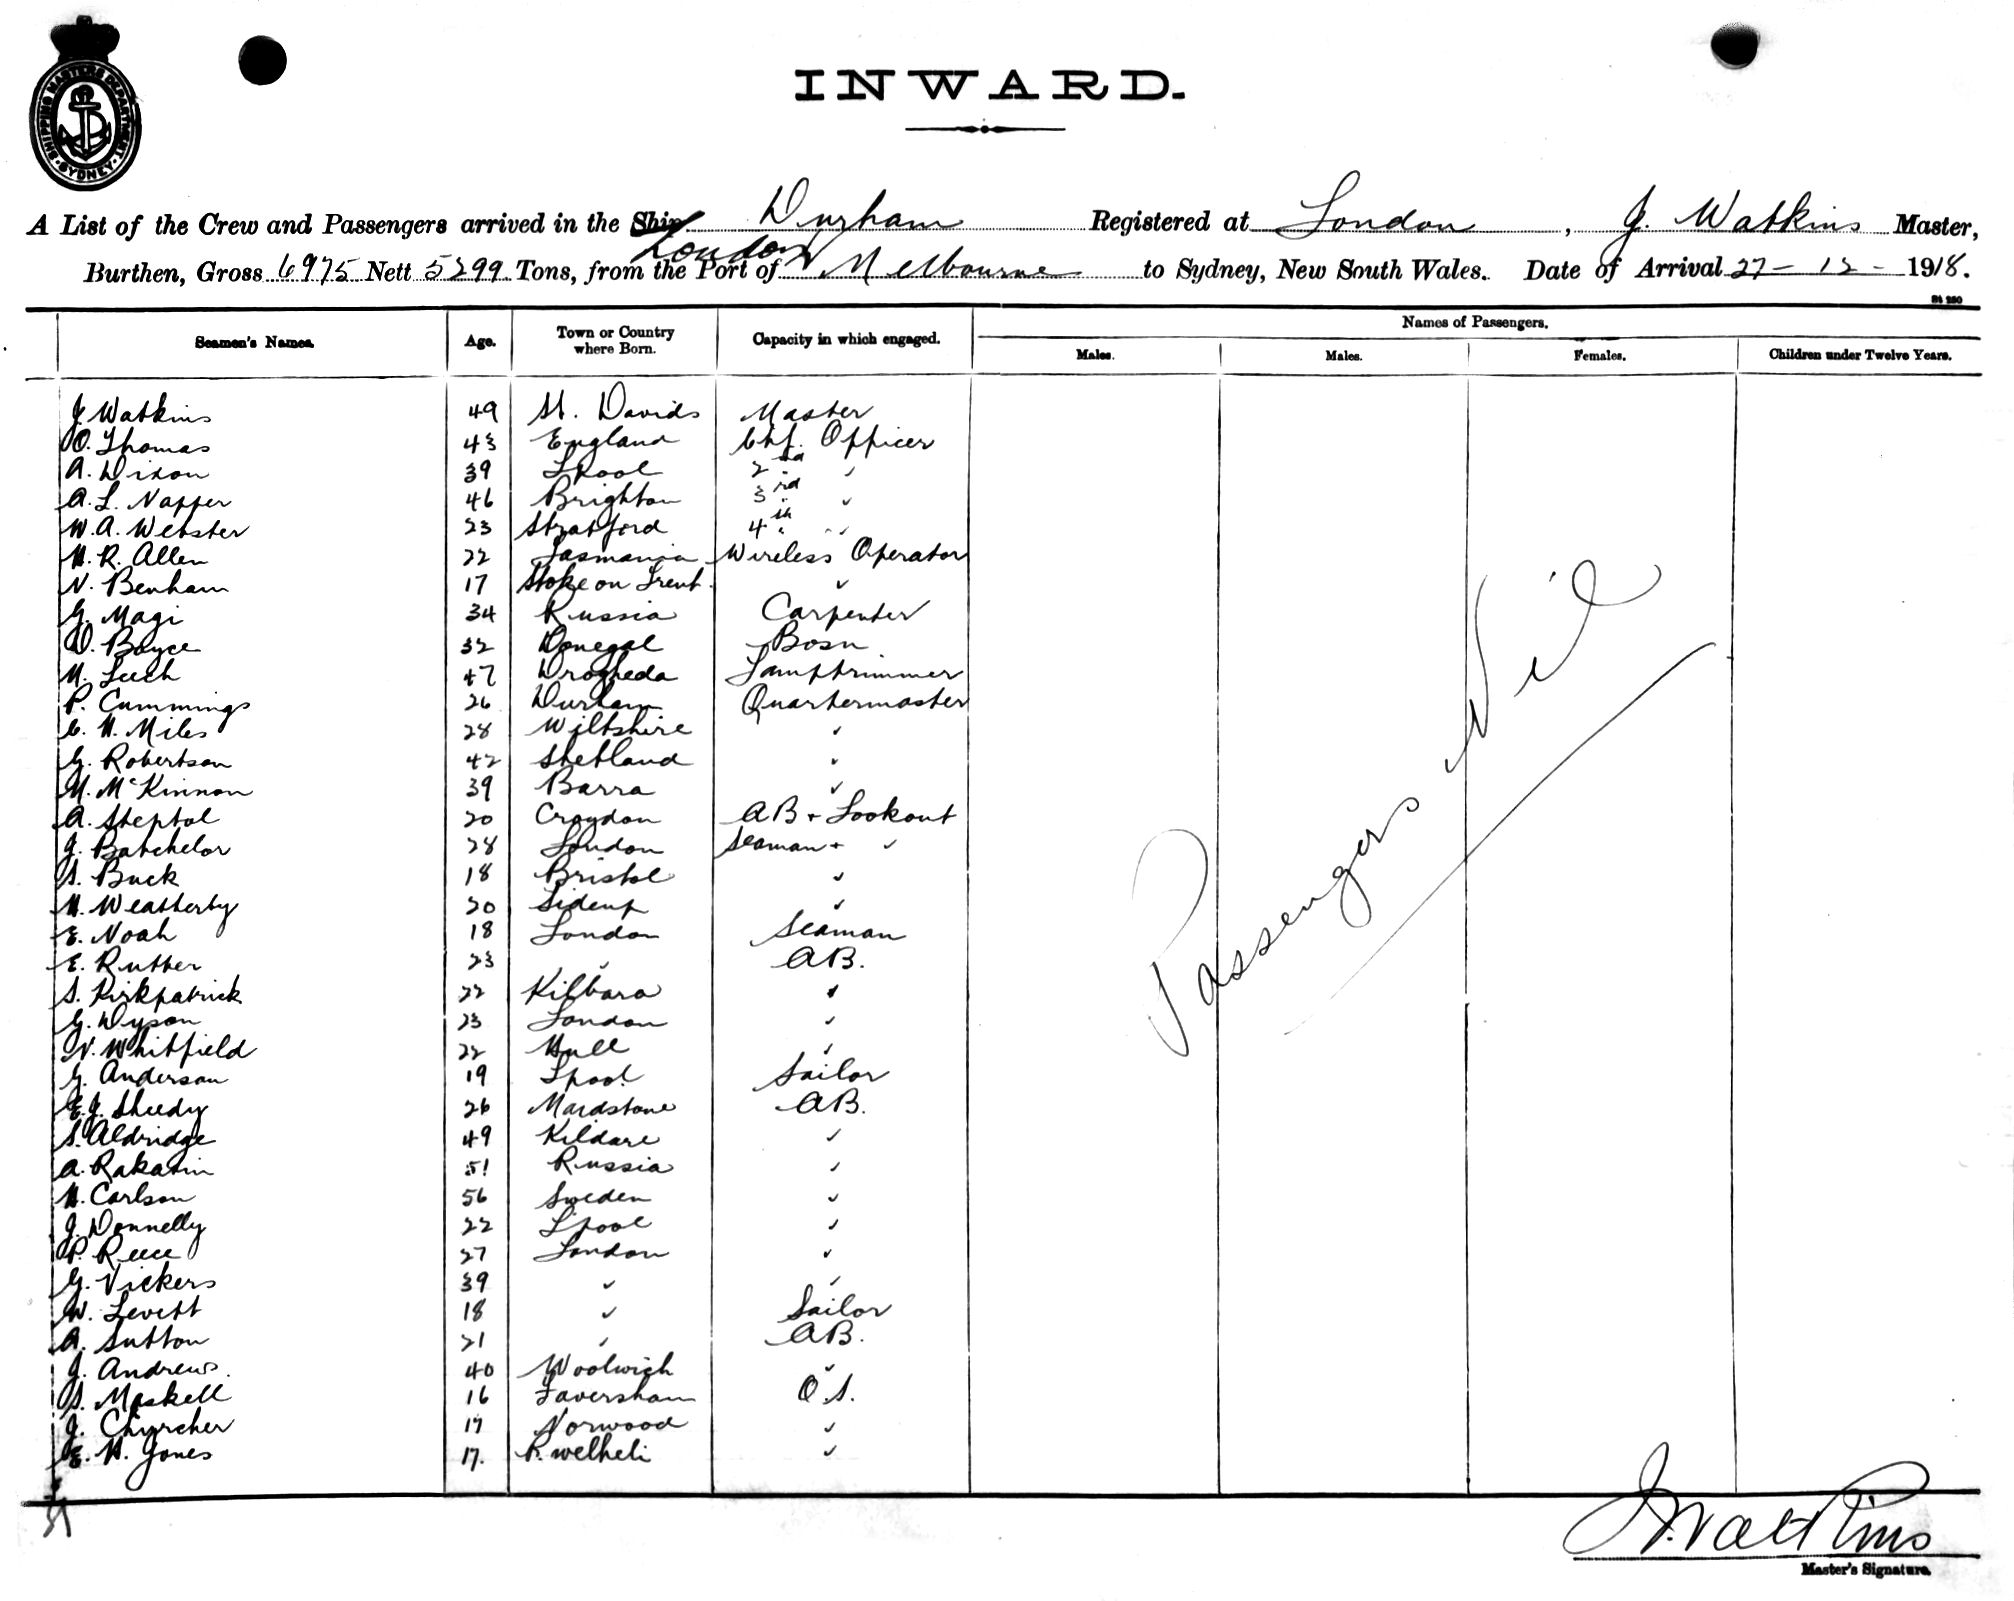 SHIPPING MASTERS DEPARTMENT · SYDNEY ·
INWARD.
A List of the Crew and Passengers arrived in the Ship Durham Registered at London, J. Watkins Master,
London &
Burthen, Gross 6975 Nett 5299 Tons, from the Port of Melbourne to Sydney, New South Wales. Date of Arrival 27-12-1918.
St 250
Seamen's Names. Age. Town or Country where Born. Capacity in which engaged. Names of Passengers.
Males. Males. Females. Children under Twelve Years.
J. Watkins 49 St. Davids Master
O. Thomas 43 England Chf. Officer
A. Dixon 39 L'pool 2nd "
A. L. Napper 46 Brighton 3rd "
W. A. Webster 23 Stratford 4th "
H. R. Allen 22 Tasmania Wireless Operator
N. Benham 17 Stoke on Trent "
G. Magi 34 Russia Carpenter
D. Boyce 32 Donegal Bosn
M. Leech 47 Drogheda Lamptrimmer
P. Cummings 26 Durham Quartermaster
C. H. Miles 28 Wiltshire "
G. Robertson 42 Shetland "
M. McKinnon 39 Barra "
A. Steptol 20 Croydon AB + Lookout
G. Batchelor 28 London Seaman + "
S. Buck 18 Bristol "
H. Weatherby 20 Sidcup "
E. Noah 18 London Seaman
E. Rutter 23 " AB.
S. Kirkpatrick 22 Kilbara "
G. Dyson 23 London "
N. Whitfield 22 Hull "
G. Anderson 19 L'pool Sailor
E. J. Sheedy 26 Maidstone AB.
S. Aldridge 49 Kildare "
A. Rakatin 51 Russia "
H. Carlson 56 Sweden "
J. Donnelly 22 L'pool "
P. Reece 27 London "
G. Vickers 39 " "
W. Levitt 18 " Sailor
A. Sutton 21 " AB.
J. Andrews. 40 Woolwich "
S. Maskell 16 Faversham O S.
J. Churcher 17 Norwood "
E. H. Jones 17. Pwelheli "
Passengers Nil
J. Watkins
Master's Signature.